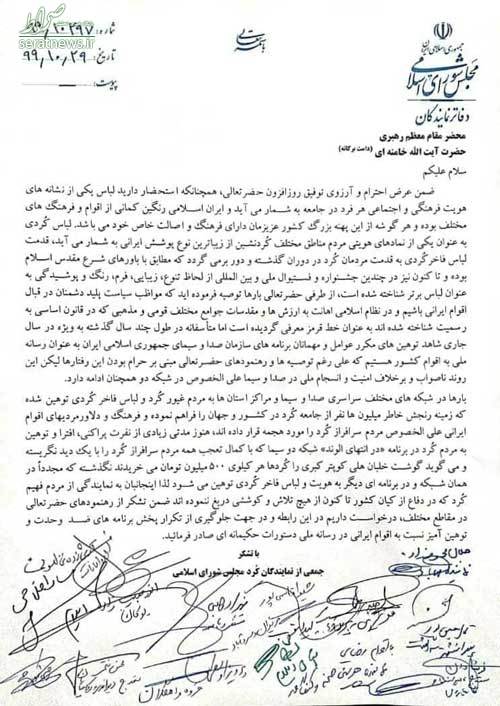 صراط
seratnews.ir
شماره: ۹۹/۱۰۲۹۷
تاریخ: ۹۹/۱۰/۲۹
پیوست:
باسمه تعالی
جمهوری اسلامی ایران
مجلس شورای اسلامی
دفاتر نمایندگان
محضر مقام معظم رهبری
حضرت آیت الله خامنه ای (دامت برکاته)
سلام علیکم
ضمن عرض احترام و آرزوی توفیق روزافزون حضرتعالی، همچنانکه استحضار دارید لباس یکی از نشانه های
هویت فرهنگی و اجتماعی هر فرد در جامعه به شمار می آید و ایران اسلامی رنگین کمانی از اقوام و فرهنگ های
مختلف بوده و هر گوشه از این پهنه بزرگ کشور عزیزمان دارای فرهنگ و اصالت خاص خود می باشد. لباس کُردی
به عنوان یکی از نمادهای هویتی مردم مناطق مختلف کُردنشین از زیباترین نوع پوشش ایرانی به شمار می آید، قدمت
لباس فاخر کُردی به قدمت مردمان کُرد در دوران گذشته و دور برمی گردد که مطابق با باورهای شرع مقدس اسلام
بوده و تا کنون نیز در چندین جشنواره و فستیوال ملی و بین المللی از لحاظ تنوع، زیبایی، فرم، رنگ و پوشیدگی به
عنوان لباس برتر شناخته شده است، از طرفی حضرتعالی بارها توصیه فرموده اید که مواظب سیاست پلید دشمنان در قبال
اقوام ایرانی باشیم و در نظام اسلامی اهانت به ارزش ها و مقدسات جوامع مختلف قومی و مذهبی که در قانون اساسی به
رسمیت شناخته شده اند به عنوان خط قرمز معرفی گردیده است اما متأسفانه در طول چند سال گذشته به ویژه در سال
جاری شاهد توهین های مکرر عوامل و مهمانان برنامه های سازمان صدا و سیمای جمهوری اسلامی ایران به عنوان رسانه
ملی به اقوام کشور هستیم که علی رغم توصیه ها و رهنمودهای حضرتعالی مبنی بر حرام بودن این رفتارها لیکن این
روند ناصواب و برخلاف امنیت و انسجام ملی در صدا و سیما علی الخصوص در شبکه دو همچنان ادامه دارد.
بارها در شبکه های مختلف سراسری صدا و سیما و مراکز استان ها به مردم غیور کُرد و لباس فاخر کُردی توهین شده
که زمینه رنجش خاطر میلیون ها نفر از جامعه کُرد در کشور و جهان را فراهم نموده و فرهنگ و دلاورمردیهای اقوام
ایرانی علی الخصوص مردم سرافراز کُرد را مورد هجمه قرار داده اند، هنوز مدتی زیادی از نفرت پراکنی، افترا و توهین
به مردم کُرد در برنامه «در انتهای الوند» شبکه دو سیما که با کمال تعجب همه مردم سرافراز کُرد را با یک دید نگریسته
و می گوید گوشت خلبان هلی کوپتر کبری را کُردها هر کیلوی ۵۰۰ میلیون تومان می خریدند نگذشته که مجدداً در
همان شبکه و در برنامه ای دیگر به هویت و لباس فاخر کُردی توهین می شود لذا اینجانبان به نمایندگی از مردم فهیم
کُرد که در دفاع از کیان کشور تا کنون از هیچ تلاش و کوششی دریغ ننموده اند ضمن تشکر از رهنمودهای حضرتعالی
در مقاطع مختلف، درخواست داریم در این رابطه و در جهت جلوگیری از تکرار پخش برنامه های ضد وحدت و
توهین آمیز نسبت به اقوام ایرانی در رسانه ملی دستورات حکیمانه ای صادر فرمائید.
با تشکر
جمعی از نمایندگان کُرد مجلس شورای اسلامی